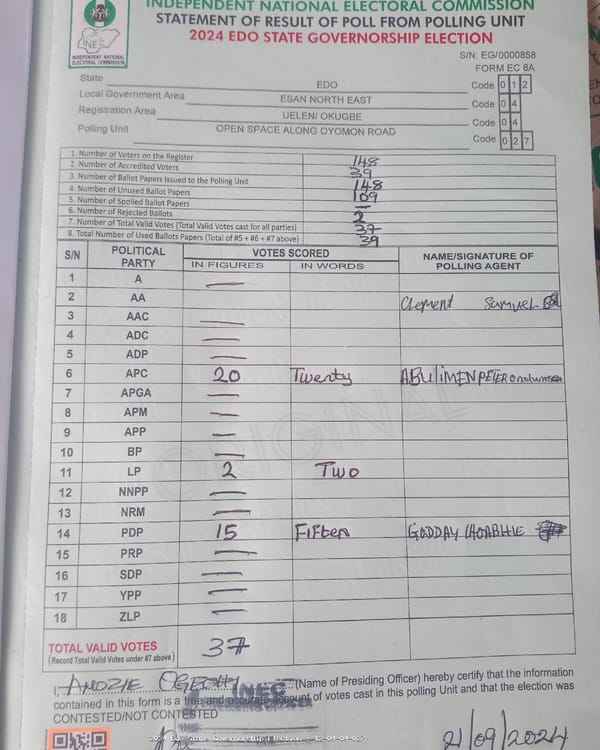 INDEPENDENT NATIONAL ELECTORAL COMMISSION
STATEMENT OF RESULT OF POLL FROM POLLING UNIT
2024 EDO STATE GOVERNORSHIP ELECTION
INEC
INDEPENDENT NATIONAL
ELECTORAL COMMISSION
S/N: EG/0000858
FORM EC 8A
State EDO Code 0 1 2
Local Government Area ESAN NORTH EAST Code 0 4
Registration Area UELEN/ OKUGBE Code 0 4
Polling Unit OPEN SPACE ALONG OYOMON ROAD Code 0 2 7
1. Number of Voters on the Register 148
2. Number of Accredited Voters 39
3. Number of Ballot Papers Issued to the Polling Unit 148
4. Number of Unused Ballot Papers 109
5. Number of Spoiled Ballot Papers —
6. Number of Rejected Ballots 2
7. Number of Total Valid Votes (Total Valid Votes cast for all parties) 37
8. Total Number of Used Ballots Papers (Total of #5 + #6 + #7 above) 39
S/N POLITICAL PARTY VOTES SCORED NAME/SIGNATURE OF POLLING AGENT
IN FIGURES IN WORDS
1 A —
2 AA Clement Samuel
3 AAC —
4 ADC —
5 ADP —
6 APC 20 Twenty ABULIMEN PETER
7 APGA —
8 APM —
9 APP —
10 BP —
11 LP 2 Two
12 NNPP —
13 NRM —
14 PDP 15 Fifteen GODDAY
15 PRP —
16 SDP —
17 YPP —
18 ZLP —
ORIGINAL
TOTAL VALID VOTES 37
(Record Total Valid Votes under #7 above)
I, (Name of Presiding Officer) hereby certify that the information
contained in this form is a true and accurate account of votes cast in this polling Unit and that the election was
CONTESTED/NOT CONTESTED
INEC
21/09/2024